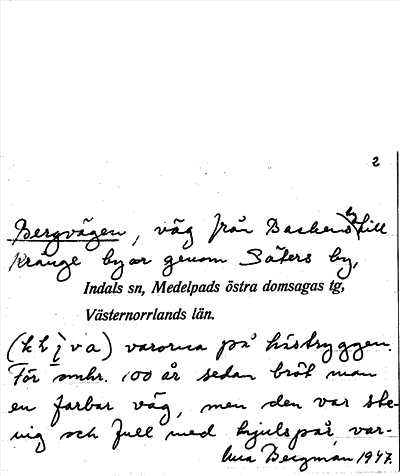 2
Bergvägen, väg från Backens by till
Krånge byar genom Säters by,
Indals sn, Medelpads östra domsagas tg,
Västernorrlands län.
(klyva) varorna på hästryggen.
För omkr. 100 år sedan bröt man
en farbar väg, men den var ste-
nig och full med hjulspår, var-
Bergman 1947.